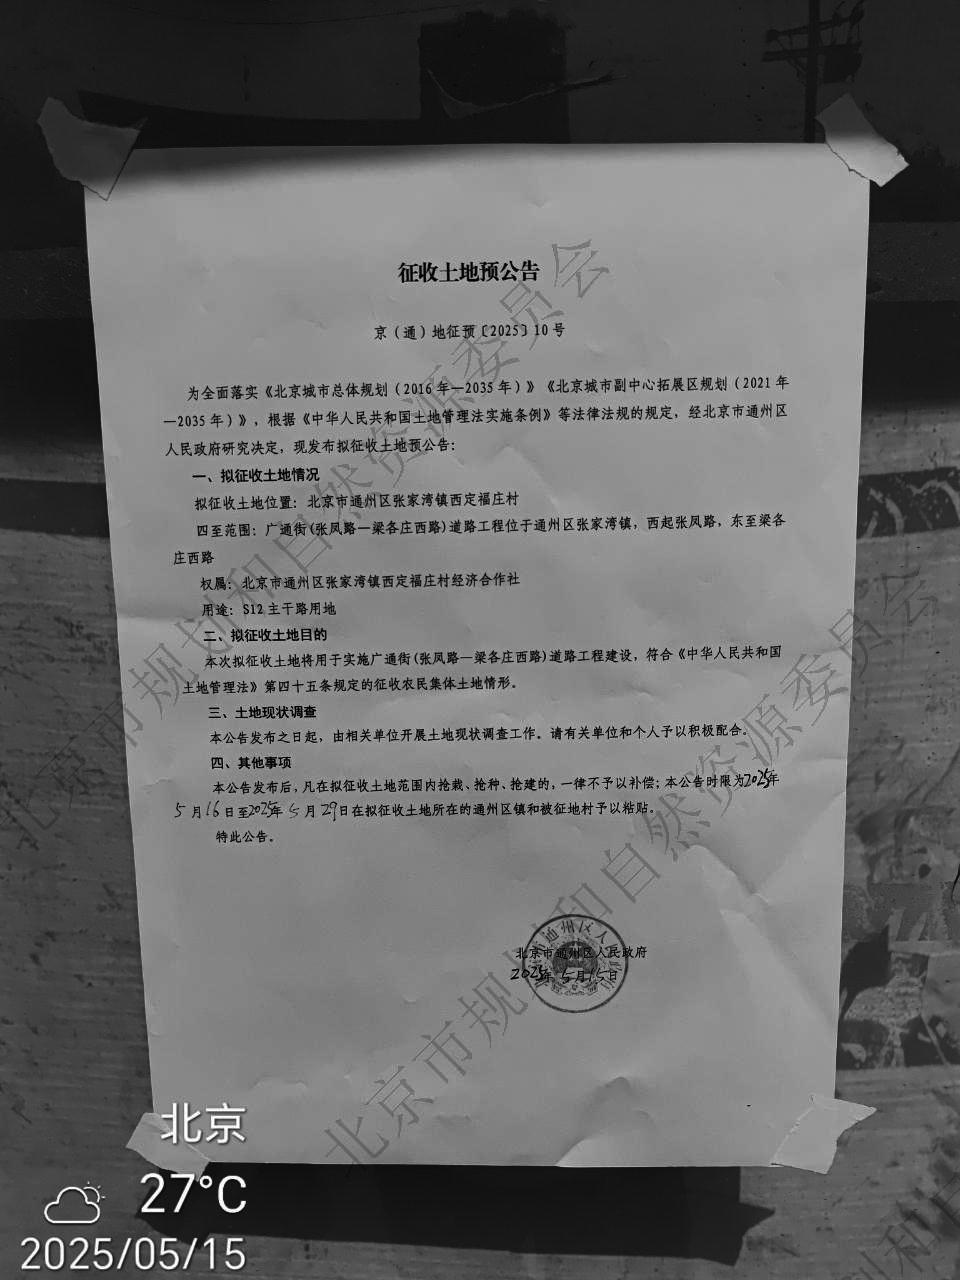 征收土地预公告
京（通）地征预〔2025〕10号
为全面落实《北京城市总体规划（2016年—2035年）》《北京城市副中心拓展区规划（2021年
—2035年）》，根据《中华人民共和国土地管理法实施条例》等法律法规的规定，经北京市通州区
人民政府研究决定，现发布拟征收土地预公告：
一、拟征收土地情况
拟征收土地位置：北京市通州区张家湾镇西定福庄村
四至范围：广通街(张凤路—梁各庄西路)道路工程位于通州区张家湾镇，西起张凤路，东至梁各
庄西路
权属：北京市通州区张家湾镇西定福庄村经济合作社
用途：S12主干路用地
二、拟征收土地目的
本次拟征收土地将用于实施广通街(张凤路—梁各庄西路)道路工程建设，符合《中华人民共和国
土地管理法》第四十五条规定的征收农民集体土地情形。
三、土地现状调查
本公告发布之日起，由相关单位开展土地现状调查工作。请有关单位和个人予以积极配合。
四、其他事项
本公告发布后，凡在拟征收土地范围内抢栽、抢种、抢建的，一律不予以补偿；本公告时限为2025年
5月16日至2025年5月29日在拟征收土地所在的通州区镇和被征地村予以粘贴。
特此公告。
北京市通州区人民政府
2025年5月15日
北京市规划和自然资源委员会
北京市规划和自然资源委员会
北京
27°C
2025/05/15